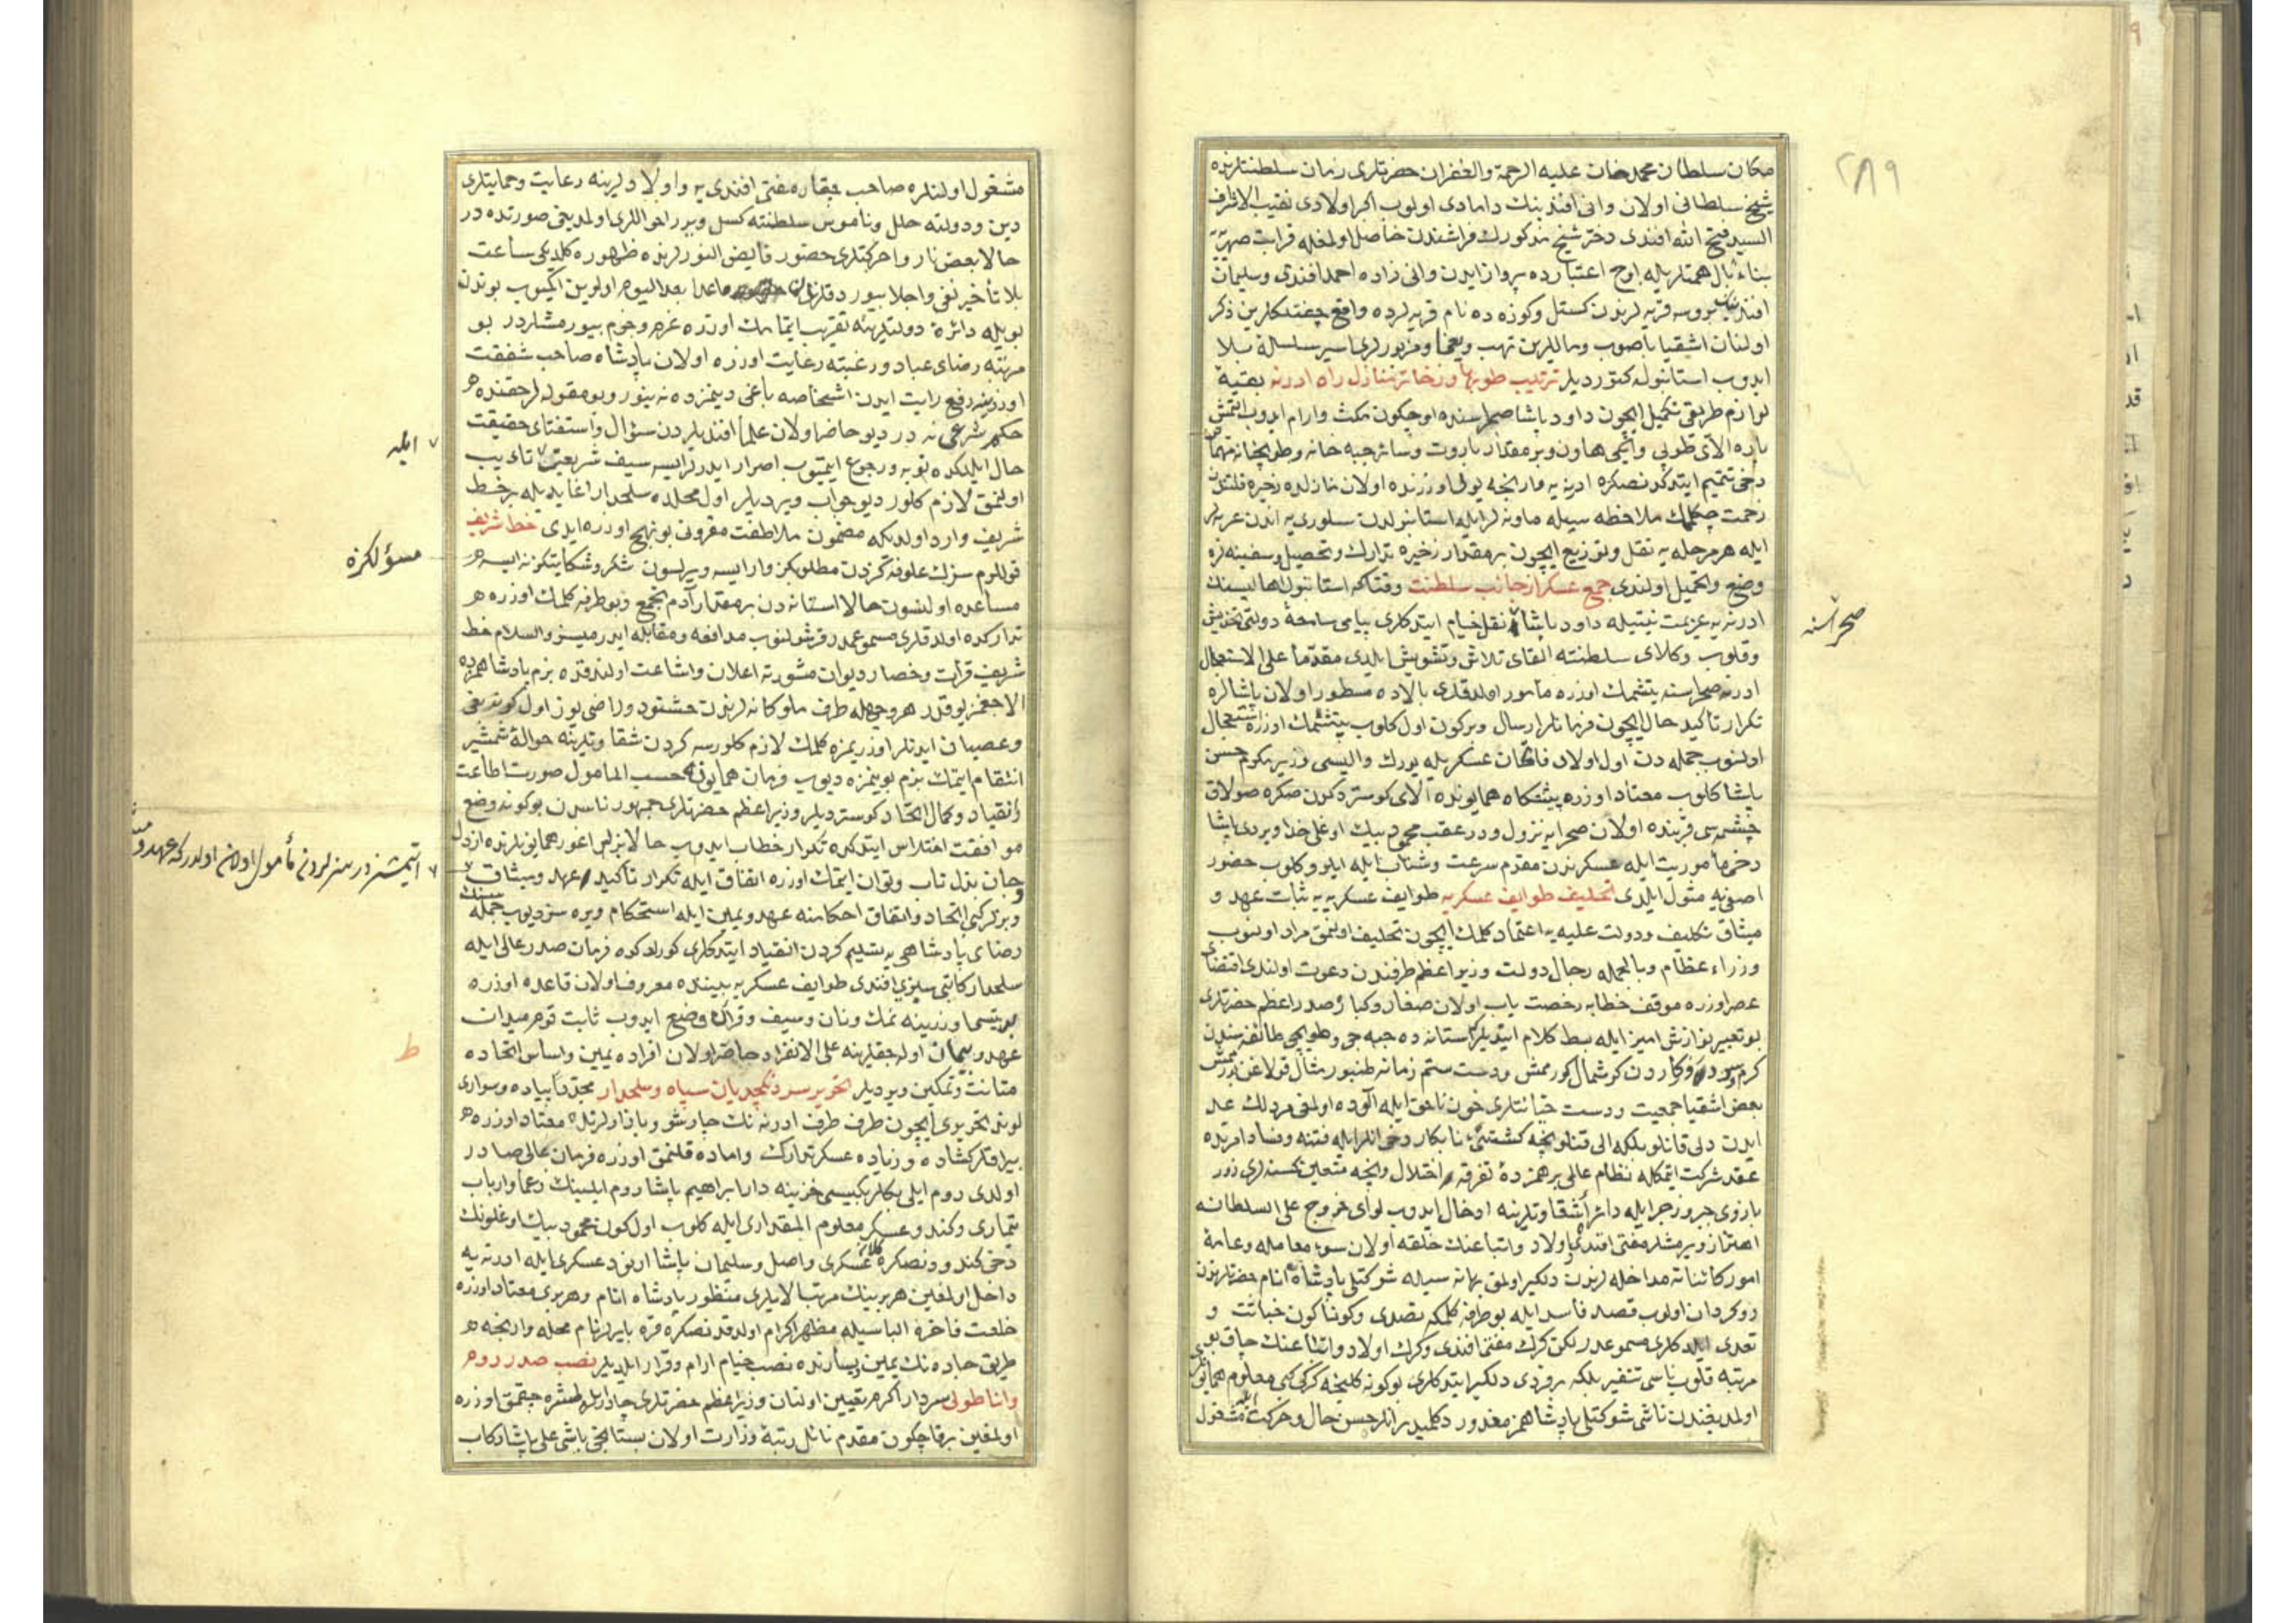 ٢٨٩
مكان سلطان محمد خان عليه الرحمة والغفران حضرتلرى زمان سلطنتلرنده
شيخ سلطانى اولان وانى افندينك دامادى اولوب اكبر اولادى نقيب الاشراف
السيد فتح الله افندى دختر شيخ مذكورك فراشندن حاصل اولمغله قرابت صهريه
بناء بال همتلريله اوج اعتبارده پرواز ايدن وانى زاده احمد افندى وسليمان
افندينك بروسه قريه لرندن كستل وكوزه ده نام قريه لرده واقع چفتلكلرين ذكر
اولنان اشقيا باصوب وماللرين نهب ويغما ومزبورلرى اسير سلسله بلا
ايدوب استانبوله كتورديلر ترتيب طوبها وذخائر منازل راه ادرنه بقيه
لوازم طريقى تكميل ايچون داود پاشا صحراسنده اوچ كون مكث وارام ايدوب التمش
پاره الاى طوپى وايكى هاون وبر مقدار باروت وسائر جبه خانه وطوپخانه مهماتن
دخى تتميم ايتدكدنصكره ادرنه يه وارنجه يولى اوزرنده اولان منازلده ذخيره قلتندن
زحمت چكلمك ملاحظه سيله ماونه لر ايله استانبولدن سلورى يه اندن عربه لر
ايله هر مرحله يه نقل وتوزيع ايچون بر مقدار ذخيره تدارك وتحصيل وسفينه لره
وضع وتحميل اولندى جمع عسكر از جانب سلطنت وقتاكه استانبول اهاليسنك
ادرنه يه عزيمت نيتيله داود پاشا نقل خيام ايتدكلرى پيامى سامعه دولتى تخديش
صحراسنه
وقلوب وكلاى سلطنته القاى تلاش وتشويش ايلدى مقدما على الاستعجال
ادرنه صحراسنه يتشمك اوزره مأمور اولدقلرى بالاده مسطور اولان پاشالره
تكرار تاكيد حال ايچون فرمانلر ارسال وبر كون اول كلوب يتشمك اوزره استعجال
اولنوب جمله دن اول اولاد فاتحان عسكريله يورك واليسى وزير مكرم حسن
پاشا كلوب معتاد اوزره پيشكاه همايونده الاى كوستردكدن صكره صولاق
چشمه سى قربنده اولان صحرايه نزول ودر عقب محمود بيك اوغلى خداويردى پاشا
دخى مأموريت ايله عسكرندن مقدم سرعت وشتاب ايله ايلرو كلوب حضور
اصفى يه مثول ايلدى تحليف طوايف عسكريه طوايف عسكريه يه ثبات عهد و
ميثاق تكليف ودولت عليه يه اعتماد كلمك ايچون تحليف اولنمق مراد اولنوب
وزراء عظام وبالجمله رجال دولت وزير اعظم طرفندن دعوت اولندى اقتضاى
عصر اوزره موقف خطابه رخصت ياب اولان صغار وكباره صدر اعظم حضرتلرى
بو تعبير نوازش اميز ايله بسط كلام ايتديلر كه استانه ده جبه جى وطوپجى طائفه سندن
كرم وسرد روزكاردن كوشمال كورممش ودست ستم زمانه طنبور مثال قولاغن بورممش
بعض اشقيا جمعيت ودست خيانتلرى خون ناحق ايله آلوده اولمغى مردلك عد
ايدن دلى قانلو بلكه الى قانلو نيجه كشتنئ نابكار دخى انلر ايله فتنه وفساد امرنده
عقد شركت اتمكله نظام عالمى برهمزده تفرقه واختلال ونيجه متعين كسنه لرى زور
بازوى جبر وزجر ايله دائره شقاوتلرينه ادخال ايدوب لواى خروج على السلطانه
اهتزاز ويرمشلر مفتى افندى واولاد واتباعنك خلقه اولان سوء معامله وعامه
امور كائناته مداخله لرندن دلكير اولمق بهانه سيله شوكتلى پادشاه انام حضرتلرندن
روكردان اولوب قصد فاسد ايله بو طرفه كلمكه تصدى وكوناكون خباثت و
تعدى ايلدكلرى مسموعمدر لكن كرك مفتى افندى وكرك اولاد واتباعنك چاق بو
مرتبه قلوب ناسى تنفير بلكه هر فردى دلكير ايتدكلرى بوكونه كلنجه كركى كبى معلوم همايونلرى
اولمديغندن ناشى شوكتلى پادشاهمز معذور دكلميدر انلر حسن حال وحركت ايله مشغول
مشغول اولنلره صاحب وقار مفتى افندى يه واولادلرينه رعايت وحمايتلرى
دين ودولته خلل وناموس سلطنته كسل ويرر احواللرى اولمديغى صورتده در
حالا بعض ناروا حركتلرى حضور فايض النورلرنده ظهوره كلديكى ساعت
بلا تأخير نفى واجلا بيوردقلرندن ماعدا بعد اليوم اولوين اكيوب بوندن
بويله دائره دولتلرينه تقريب ايتمامك اوزره عزم وجزم بيورمشلردر بو
مرتبه رضاى عباد ورغبته رعايت اوزره اولان پادشاه صاحب شفقت
اوزرينه رفع رايت ايدن اشخاصه باغى ديمزده نه دينور وبو مقوله لر حقنده
حكم شرعى نه در ديو حاضر اولان علما افنديلردن سؤال واستفتاى حقيقت
حال ايلدكده توبه ورجوع ايتميوب اصرار ايدرلر ايسه سيف شريعت تاديب
ايله
اولنمق لازم كلور ديو جواب ويرديلر اول محلده سلحدار اغا يديله بر خط
شريف وارد اولديكه مضمون ملاطفت مقرونى بو نهج اوزره ايدى خط شريف
قوللرم سزك علوفه كزدن مطلوبكز وار ايسه ويرلسون شكر وشكايتكز نه ايسه
مسؤلكزه
مساعده اولنسون حالا استانه دن بر مقدار آدم تجمع وبو طرفه كلمك اوزره
تداركده اولدقلرى مسموعمدر قرشو لنوب مدافعه ومقابله ايدر ميسز والسلام خط
شريف قرائت وحضار ديوان مشورته اعلان واشاعت اولندقده بزم پادشاهمزده
الاجغمز يوقدر هر وجهله طرف ملوكانه لرندن خشنود وراضى يوز اول كونه بغى
وعصيان ايدنلر اوزريمزه كلمك لازم كلورسه كردن شقاوتلرينه حواله شمشير
انتقام ايتمك بزم بوينمزه ديوب فرمان همايونه حسب المامول صورت اطاعت
وانقياد وكمال اتحاد كوستردیلر وزير اعظم حضرتلرى جمهور ناسدن بو كونه وضع
موافقت اختلاس ايتدكده تكرار خطاب ايدوب حالا بزلر اغور همايونلرنده از دل
وجان بذل تاب وتوان ايتمك اوزره اتفاق ايله تكرار تأكيد عهد وميثاق
ايتمشزدر سزلردن مأمول اولان اولدركه عهد و
وبو تركيبى اتحاد واتفاق احكامنه عهد ويمين ايله استحكام ويره سز ديوب جمله سنك
رضاى پادشاهى يه تسليم كردن انقياد ايتدكلرى كورلدكده فرمان صدر عالى ايله
سلحدار كاتبى سليزى افندى طوايف عسكريه بيننده معروف اولان قاعده اوزره
بر تپسى اوزرينه نمك ونان وسيف وقران وضع ايدوب ثابت قدم ميدان
عهد وپيمان اوله جقلرينه على الانفراد حاضر اولان افراده يمين واساس اتحاده
ط
متانت وتمكين ويرديلر تحرير سردنكچديان سپاه وسلحدار مجددا پياده وسوارى
لوند تحريرى ايچون طرف طرف ادرنه نك چارشو وبازارلرنده معتاد اوزره
بيراقلر كشاده وزياده عسكر تدارك واماده قلنمق اوزره فرمان عالى صادر
اولدى روم ايلى بكلربكيسى خزينه دار ابراهيم پاشا روم ايلينك زعما وارباب
تيمارى وكندو عسكر معلوم المقدارى ايله كلوب اول كون محمود بيك اوغلونك
دخى كندودنصكره قلان عسكرى واصل وسليمان پاشا ارنود عسكرى ايله ادرنه يه
داخل اولمغين هر برينك مرتب الايلرى منظور پادشاه انام وهر برى معتاد اوزره
خلعت فاخره الباسيله مظهر اكرام اولدقدنصكره قره بايرلر نام محله وارنجه
طريق جاده نك يمين ويسارنده نصب خيام ارام وقرار ايلديلر نصب صدر روم
واناطولى سردار اكرم تعيين اولنان وزير اعظم حضرتلرى چادرلر ايله طشره چيقمق اوزره
اولمغين برقاچ كون مقدم نائل رتبه وزارت اولان بستانجى باشى على پاشا ركاب